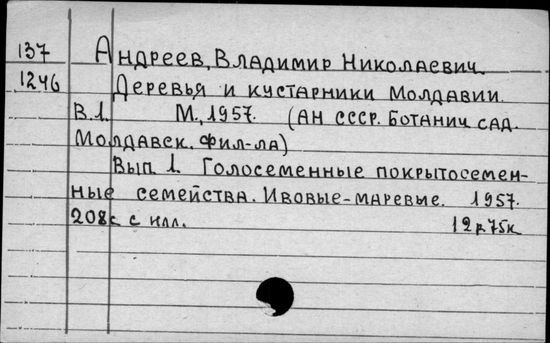 137 Андреев, Владимир Николаевич.
1246 Деревья и кустарники Молдавии.
В.1. М., 1957. (АН СССР. Ботанич сад.
Молдавск. фил-ла)
Вып. 1. Голосеменные покрытосемен-
ные семейства. Ивовые-маревые. 1957.
208с с илл. 12р75к